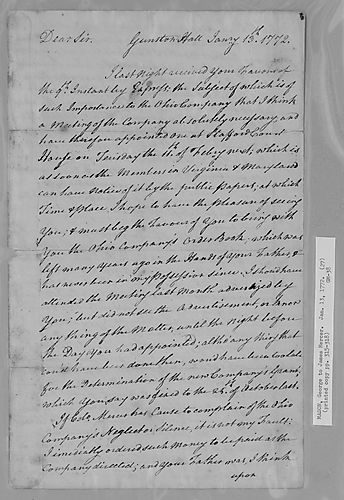 Dear Sir. Gunston Hall Janry 13th. 1772.
I last Night received Your Favour of
the Instant by Express: the Subject of which is of
such Importance to the Ohio Company that I think
a Meeting of the Company absolutely necessary, and
have therefore appointed one at Stafford Court
House on Tuesday the of Febry next, which is
as soon as the Members in Virginia & Maryland
can have Notice of it by the public Papers; at which
Time & Place I hope to have the Pleasure of seeing
You; & must beg the Favour of You to bring with
You the Ohio Company's Order Book; which was
left many Years ago in the Hands of Your Father, &
has never been in my Possession since. I should have
attended the Meeting last Month advertised by
You; but did not see the Advertisement, or know
any thing of the Matter, until the Night before
the Day you had appointed; altho' any thing that
cou'd have been done then, wou'd have been too late
for the Determination of the new Company's Grant,
which You say was to the 24th. of October last.
If Colo. Mercer has Cause to complain of the Ohio
Company's Neglect or Silence, it is not my Fault;
I immediately ordered such Money to be paid as the
Company directed; and Your Father was, I think
upon
MASON, George to James Mercer. Jan. 13, 1772.
(printed copy pp. 312-313)